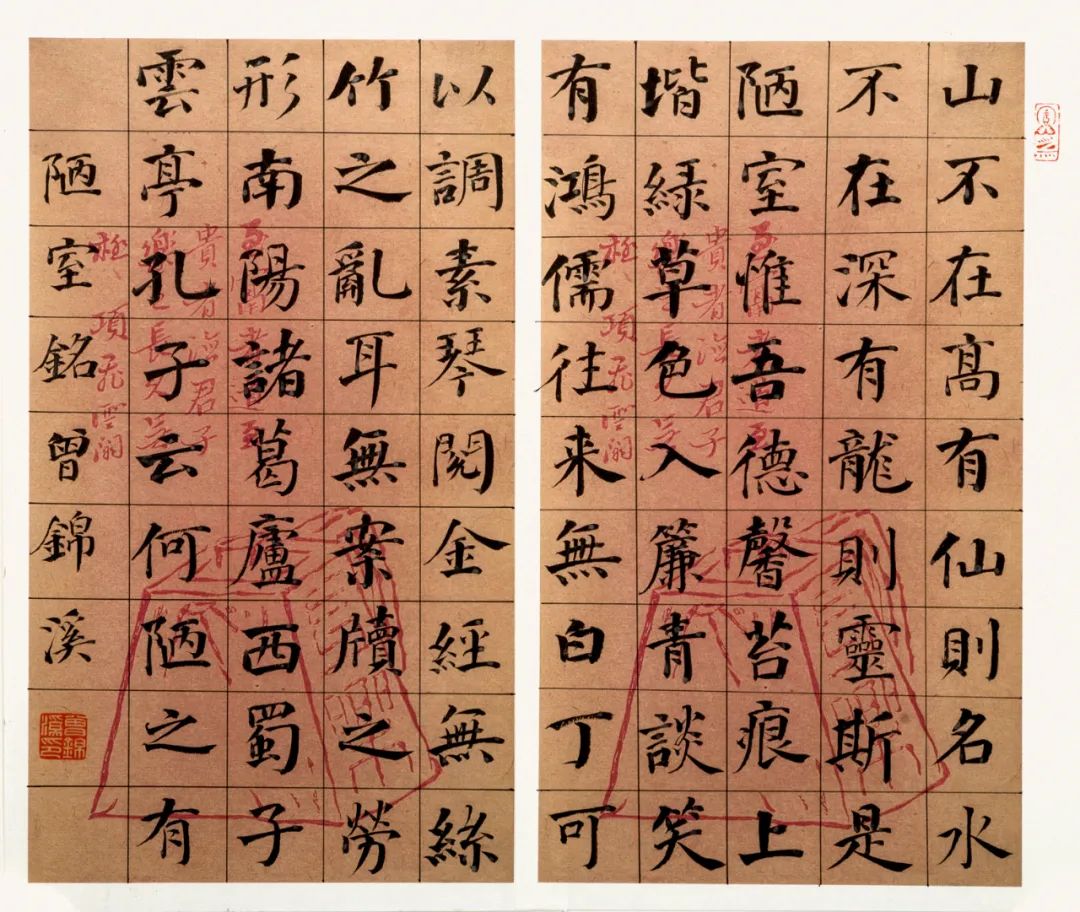 山不在高有仙則名水
不在深有龍則靈斯是
陋室惟吾德馨苔痕上
堦緑草色入簾青談笑
有鴻儒往来無白丁可
以調素琴閱金經無絲
竹之亂耳無案牘之勞
形南陽諸葛廬西蜀子
雲亭孔子云何陋之有
陋室銘曾錦溪
曾錦溪印